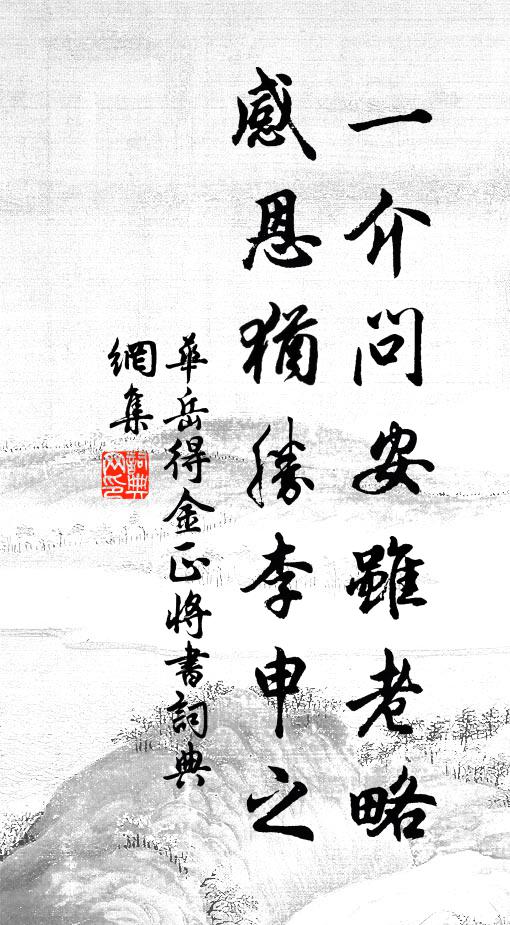 一介問安雖老略
感恩猶勝李申之
華岳得金正將書詞典
網集
詞典網印